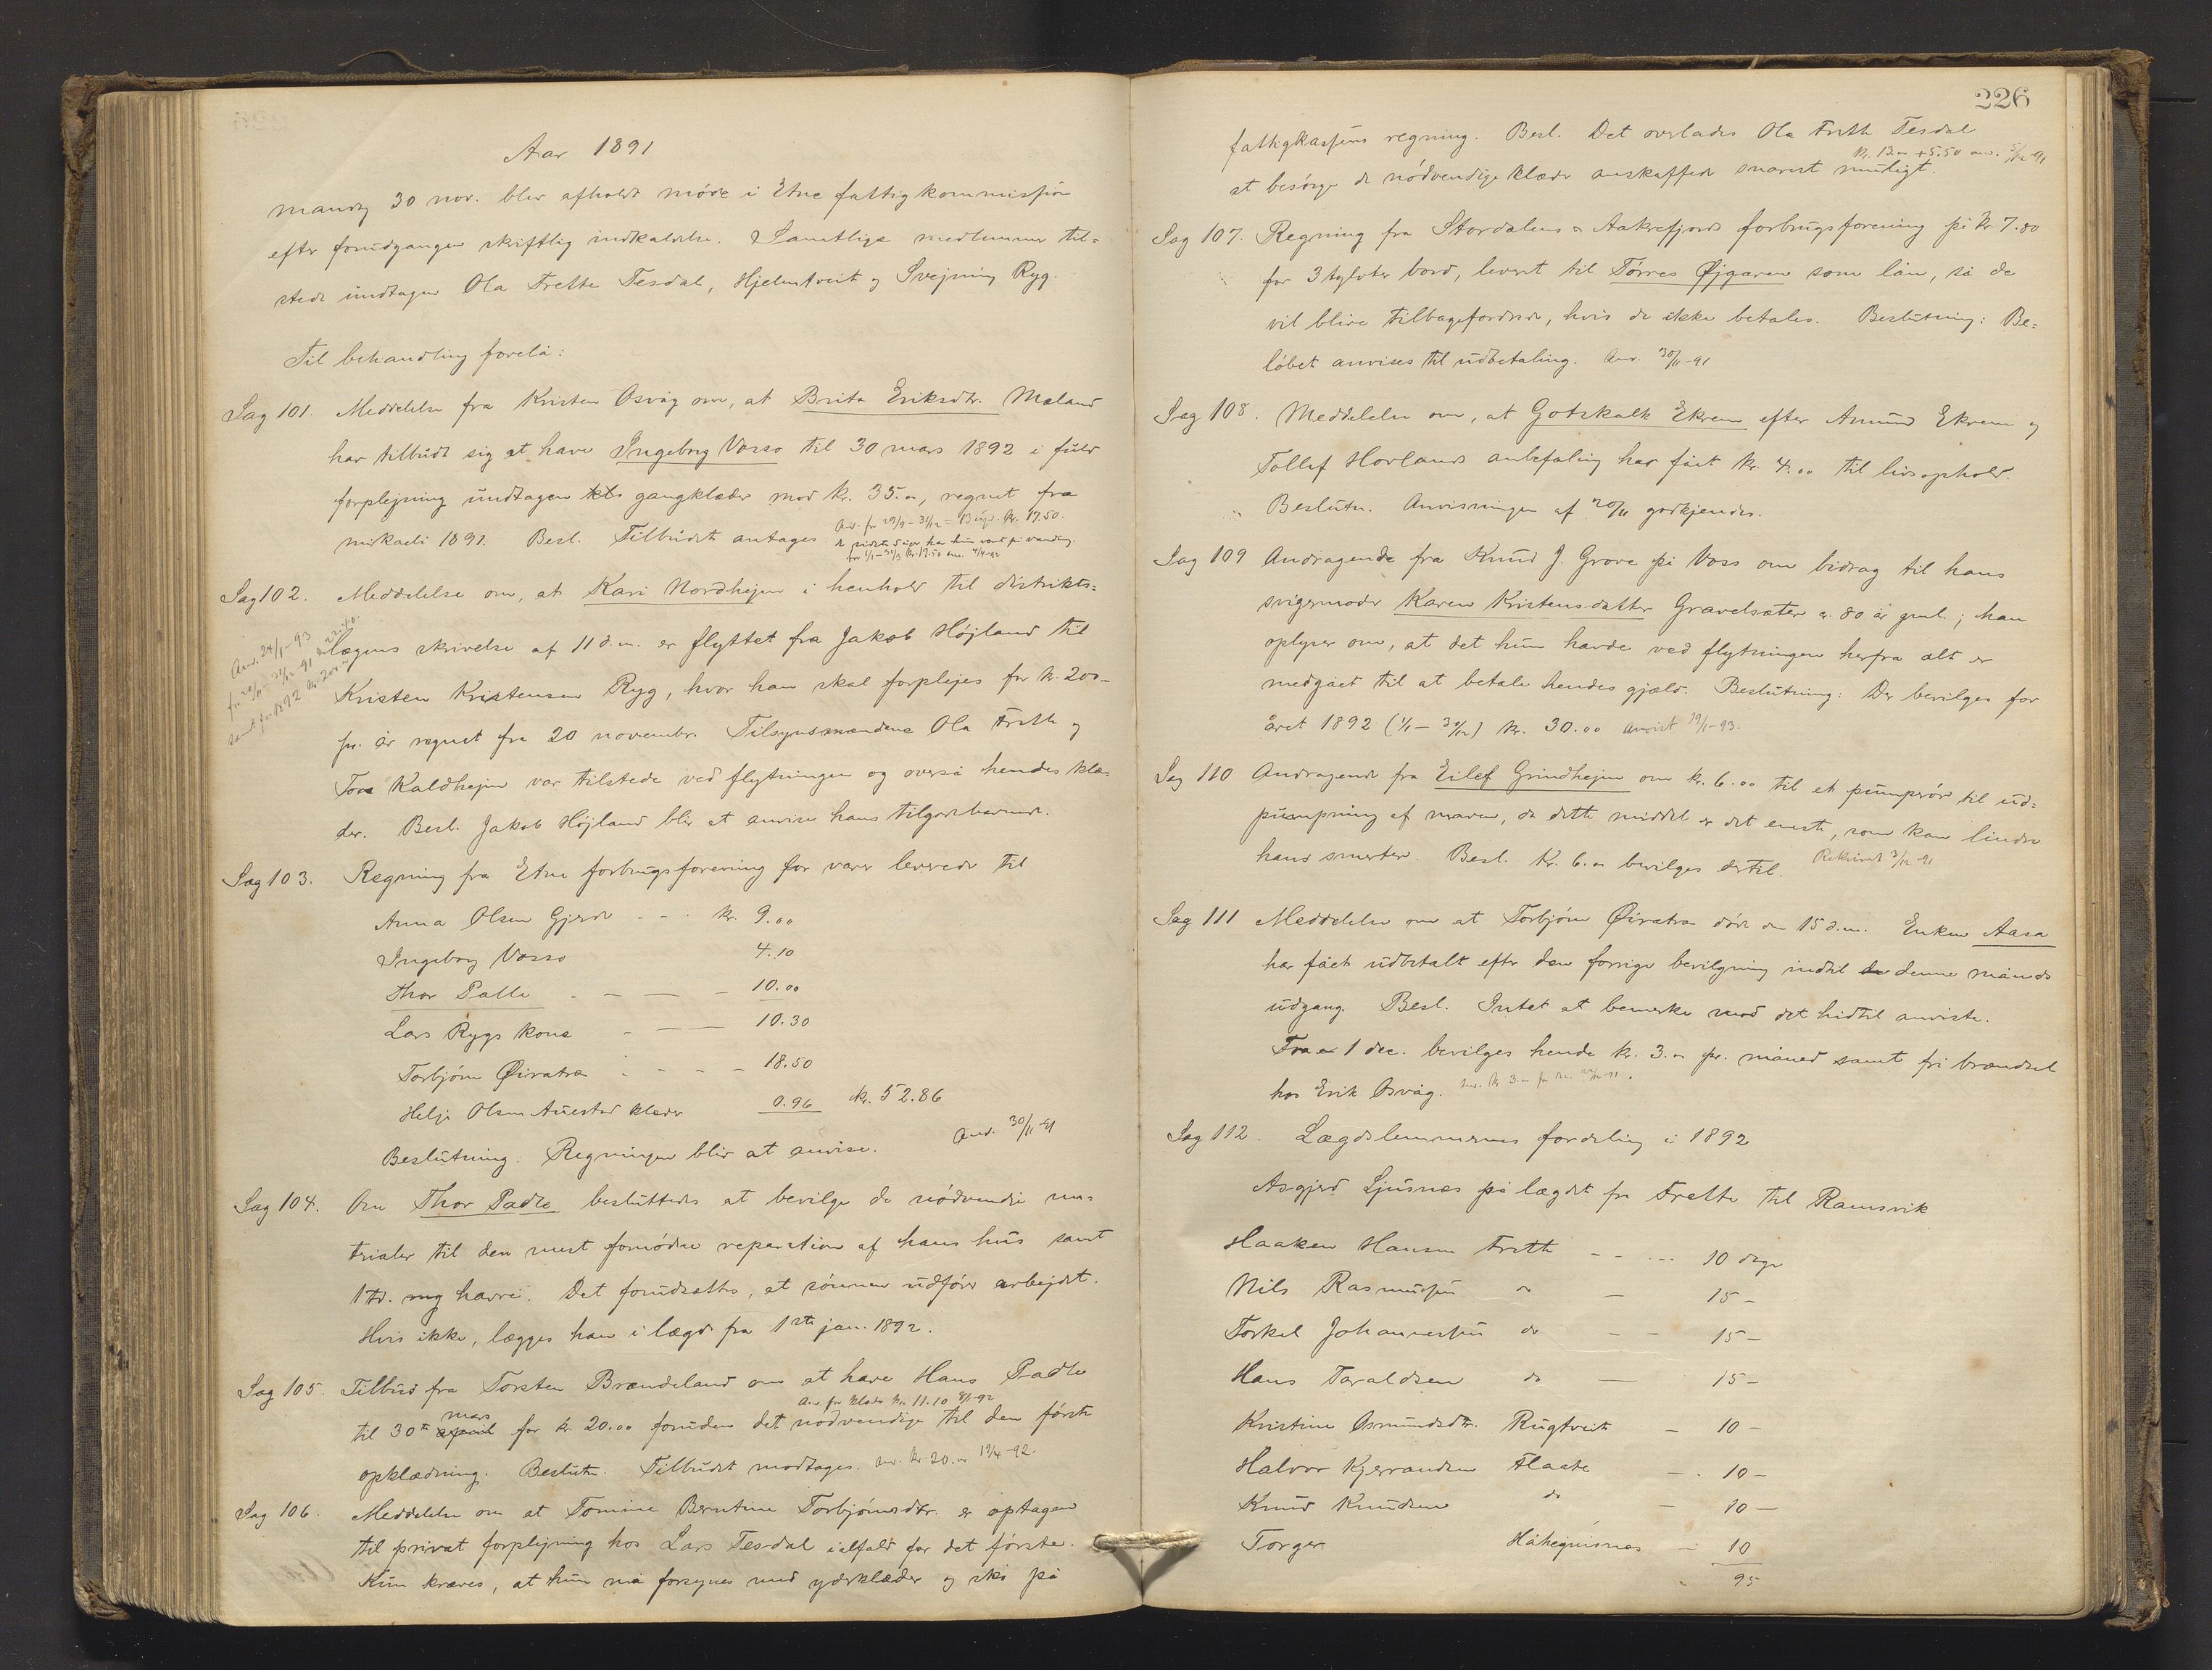 Aar 1891
mandag 30 nov. blev afholdt møde i Etne fattigkommission
efter forudgangen skriftlig indkaldelse. Samtlige medlemmer til-
stede undtagen Ola Frette Tesdal, Hjelmtveit og Svejnung Ryg.
Til behandling forelå:
Sag 101. Meddelelse fra Kristen Osvåg om, at Brita Eriksdtr. Mæland
har tilbudt sig at have Ingeborg Vosso til 30 mars 1892 i fuld
forplejning undtagen gangklæder mod kr. 35.00, regnet fra
mikaeli 1891. Besl. Tilbudet antages
Anv. fr 29/9 - 31/12 = kr. 17.50.
de sidste 5 uger har hun vært på vanding.
for 1/1 - 31/3 kr. 17.50 anv. 4/4-92
Sag 102. Meddelelse om, at Kari Nordhejm i henhold til distrikts-
lægens skrivelse af 11 d.m. er flyttet fra Jakob Højland til
Kristen Kristensen Ryg, hvor han skal forplejes for kr. 200-
pr. år regnet fra 20 november. Tilsynsmændene Ola Frette og
Tore Kaldhejm var tilstede ved flytningen og overså hendes klæ-
der. Besl. Jakob Højland blir at anvise hans tilgodehavende.
Anv. 24/1-93
fr 20/11 - 31/12 - 91 22.40
samt for 1892 kr. 200.00
Sag 103. Regning fra Etne forbrugsforening for varer leverede til
Anna Olsen Gjerde - - - kr. 9.00
Ingeborg Vosso 4.10
Thor Palle - - - 10.00
Lars Rygs kone - - - 10.30
Torbjørn Øivatræ - - - 18.50
Helje Olsen Auestad klæder 0.96 kr. 52.86
Beslutning: Regningen blir at anvise. Anv. 30/11-91
Sag 104. Om Thor Padle besluttedes at bevilge de nødvendie ma-
trialer til den mest fornødne reparation af hans hus samt
1 td. havre. Det forudsættes, at sønnen udfører arbejdet.
Hvis ikke, lægges han i lægd fra 1ste jan. 1892.
Sag 105. Tilbud fra Torsten Brændeland om at have Hans Padle
Anv. for klæder kr. 11.10 8/1-92
mars
til 30te april for kr. 20.00 foruden det nødvendige til den første
opklædning. Beslutn. Tilbudet modtages. anv. kr. 20.00 19/4-92
Sag 106. Meddelelse om at Tomine Berntine Torbjørnsdtr. er optagen
til privat forplejning hos Lars Tesdal ialfald for det første.
Kun kræves, at hun må forsynes med yderklæder og sko på
226
fattigkassens regning. Besl. Det overlades Ola Frette Tesdal
kr. 13.00 + 5.50 anv. 5/12-91
at besørge de nødvendige klæder anskaffede snarest muligt.
Sag 107. Regning fra Stordalens & Aakrefjords forbrugsforening på kr 7.80
for 3 tylvter bord, leveret til Tørres Øjgaren som lån, så de
vil blive tilbagefordrede, hvis de ikke betales. Beslutning: Be-
løbet anvises til udbetaling. Anv. 30/11-91
Sag 108. Meddelelse om, at Gotskalk Ekrem efter Amund Ekrem og
Tollef Hovlands anbefaling har fået kr. 4.00 til livsophold.
Beslutn. Anvisningen af 20/11 godkjendes.
Sag 109 Andragende fra Knud J. Grove på Voss om bidrag til hans
svigermoder Karen Kristensdatter Gravelsæter er 80 år gml.; han
oplyser om, at det hun havde ved flytningen herfra alt er
medgået til at betale hendes gjæld. Beslutning: Der bevilges for
året 1892 (1/1 - 31/12) kr. 30.00 anvist 19/1-93.
Sag 110 Andragende fra Eilef Grindhejm om kr. 6.00 til et pumperør til ud-
pumpning af maven, da dette middel er det eneste, som kan lindre
hans smerter. Besl. Kr. 6.00 bevilges dertil. Rekvireret 3/12-91
Sag 111 Meddelelse om at Torbjørn Øivatræ døde den 15 d.m. Enken Aasa
har fået udbetalt efter den forrige bevilgning indtil denne måneds
udgang. Besl. Intet at bemerke mod det hidtil anviste.
Fra 1 dec. bevilges hende kr. 3.00 pr. måned samt fri brændsel
hos Erik Osvåg.
Sag 112. Lægdslemmernes fordeling i 1892
Asgjerd Ljusnes på lægdet fra Frette til Ramsvik
Haaken Hansen Frette - - - 10 dage
Nils Rasmussen do - 15 -
Torkel Johannessen do - - 15 -
Hans Taraldsen do - 15 -
Kristine Osmundsdtr. Rugtveit - 10 -
Halvor Kjerrandsen Flaate - 10 -
Knud Knudsen do - 10 -
Torger Håheguisnes - 10
95